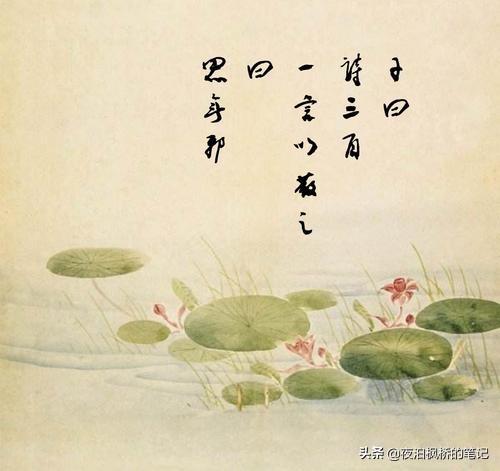 子曰
詩三百
一言以蔽之
曰
思無邪
头条 @夜泊枫桥的笔记